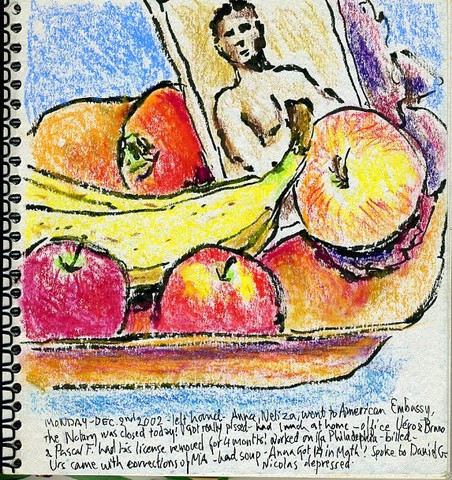 MONDAY - DEC. 2nd 2002 - left hand - Anna, Neliza, went to American Embassy,
the Notary was closed today! I got really pissed - had lunch at home - office Vero & Bruno
& Pascal F. had his license removed for 4 months! worked on Philadelphia - billed -
Urs came with corrections of MA - had soup - Anna got in Math! Spoke to David G.
Nicolas depressed.